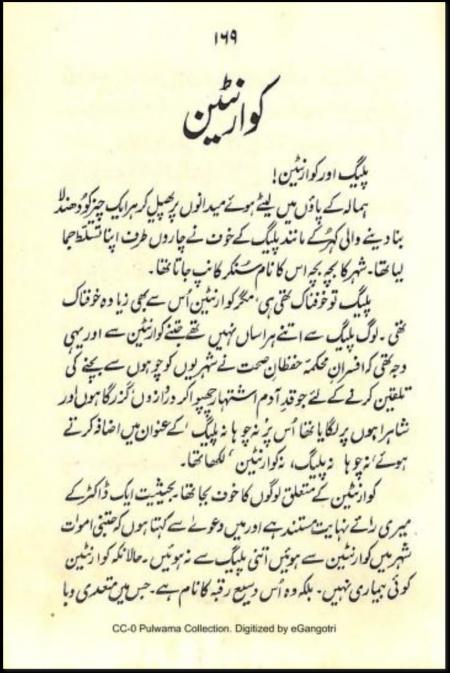 ۱۶۹
کوارنٹین
پلیگ اور کوارنٹین!
ہمالہ کے پاؤں میں لیٹے ہوئے میدانوں پر پھیل کر ہر ایک چیز کو دھندلا
بنا دینے والی کہرے کے مانند پلیگ کے خوف نے چاروں طرف اپنا تسلط جما
لیا تھا۔ شہر کا بچہ بچہ اس کا نام سُنکر کانپ جاتا تھا۔
پلیگ تو خوفناک تھی ہی، مگر کوارنٹین اُس سے بھی زیادہ خوفناک
تھی۔ لوگ پلیگ سے اتنے ہراساں نہیں تھے جتنے کوارنٹین سے اور یہی
وجہ تھی کہ افسرانِ محکمۂ حفظانِ صحت نے شہریوں کو چوہوں سے بچنے کی
تلقین کرنے کے لئے جو قدِ آدم اشتہار چھپوا کر دروازوں، گذرگاہوں اور
شاہراہوں پر لگایا تھا اُس پر ’نہ چوہا نہ پلیگ‘ کے عنوان میں اضافہ کرتے
ہوئے ’نہ چوہا نہ پلیگ، نہ کوارنٹین‘ لکھا تھا۔
کوارنٹین کے متعلق لوگوں کا خوف بجا تھا۔ بحیثیت ایک ڈاکٹر کے
میری رائے نہایت مستند ہے اور میں دعوے سے کہتا ہوں کہ جتنی اموات
شہر میں کوارنٹین سے ہوئیں اتنی پلیگ سے نہ ہوئیں۔ حالانکہ کوارنٹین
کوئی بیماری نہیں۔ بلکہ وہ اُس وسیع رقبہ کا نام ہے۔ جس میں متعدی وبا
CC-0 Pulwama Collection. Digitized by eGangotri